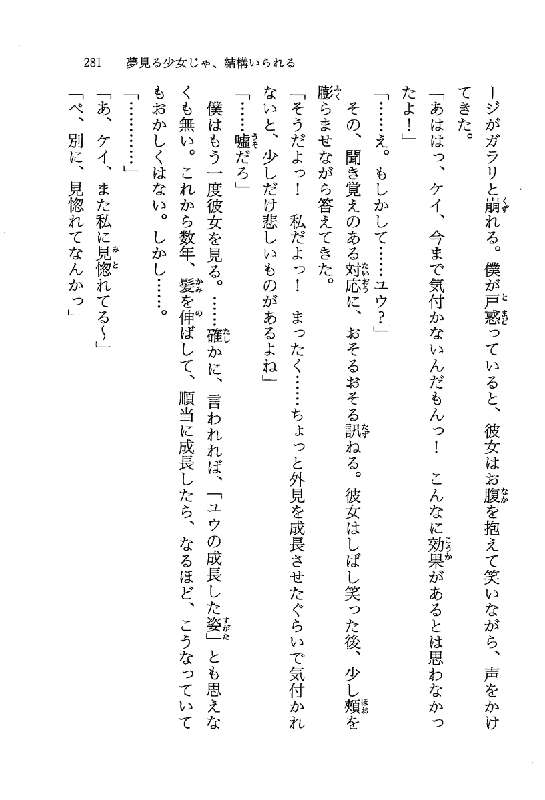 281　夢見る少女じゃ、結構いられる
ージがガラリと崩れる。僕が戸惑っていると、彼女はお腹を抱えて笑いながら、声をかけ
てきた。
「あははっ、ケイ、今まで気付かないんだもんっ！　こんなに効果があるとは思わなかっ
たよ！」
「……え。もしかして……ユウ？」
その、聞き覚えのある対応に、おそるおそる訊ねる。彼女はしばし笑った後、少し頬を
膨らませながら答えてきた。
「そうだよっ！　私だよっ！　まったく……ちょっと外見を成長させたぐらいで気付かれ
ないと、少しだけ悲しいものがあるよね」
「……嘘だろ」
僕はもう一度彼女を見る。……確かに、言われれば、「ユウの成長した姿」とも思えな
くも無い。これから数年、髪を伸ばして、順当に成長したら、なるほど、こうなっていて
もおかしくはない。しかし……。
「…………」
「あ、ケイ、また私に見惚れてる～」
「べ、別に、見惚れてなんかっ」